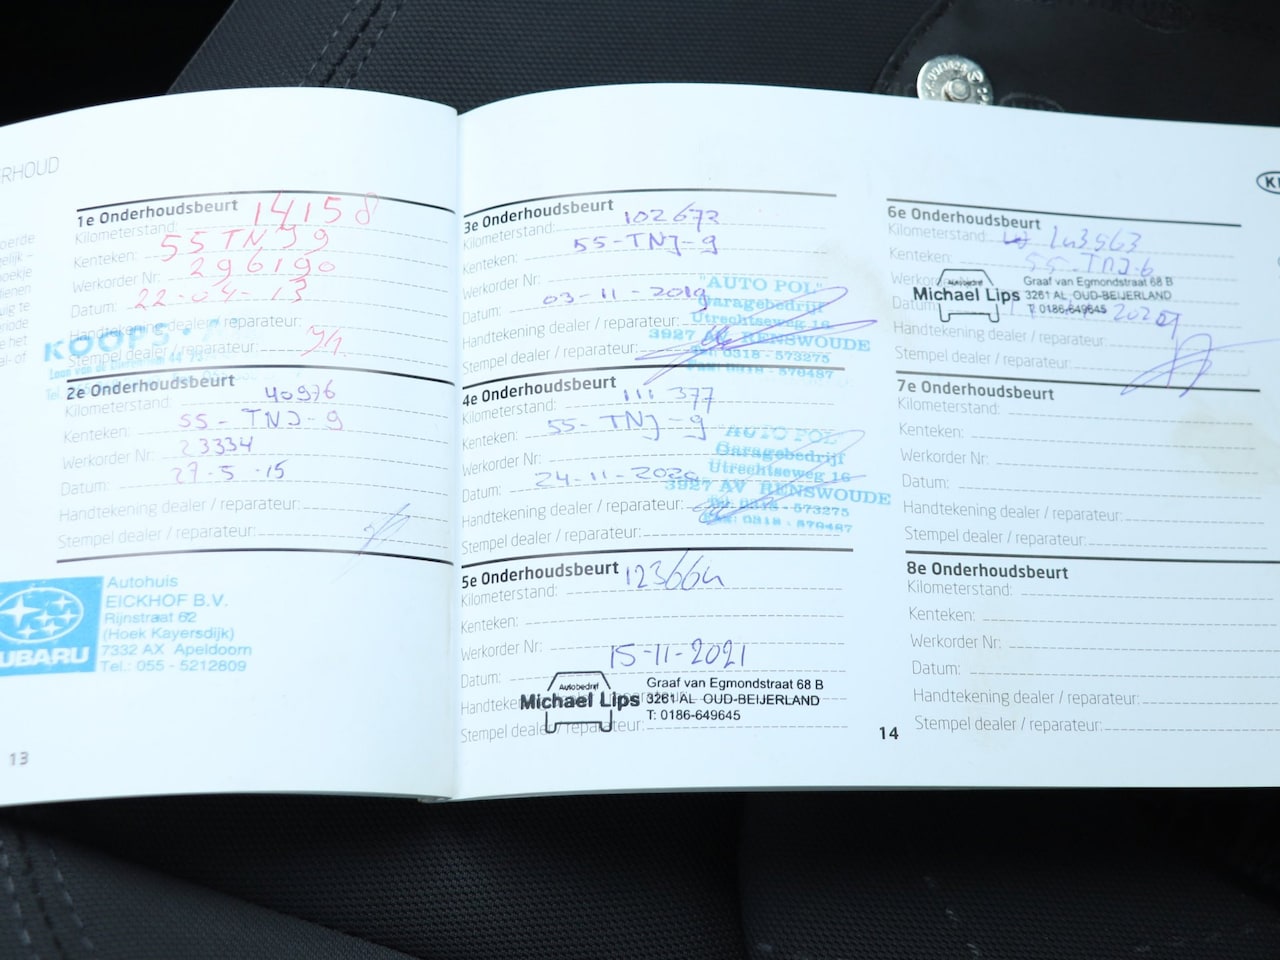 RHOUD
1e Onderhoudsbeurt 14158
Kilometerstand:
Kenteken: 55 TNJ 9
Werkorder Nr: 296190
Datum: 22-04-13
Handtekening dealer / reparateur:
Stempel dealer / reparateur:
KOOPS
2e Onderhoudsbeurt
Kilometerstand: 40976
Kenteken: 55-TNJ-9
Werkorder Nr: 23334
Datum: 27-5-15
Handtekening dealer / reparateur:
Stempel dealer / reparateur:
UBARU
Autohuis
EICKHOF B.V.
Rijnstraat 62
(Hoek Kayersdijk)
7332 AX Apeldoorn
Tel.: 055 - 5212809
13
3e Onderhoudsbeurt
Kilometerstand: 102672
Kenteken: 55-TNJ-9
Werkorder Nr:
Datum: 03-11-2019
Handtekening dealer / reparateur:
Stempel dealer / reparateur:
"AUTO POL"
Garagebedrijf
Utrechtseweg 16
3927 AV RENSWOUDE
Tel: 0318 - 573275
Fax: 0318 - 570487
4e Onderhoudsbeurt
Kilometerstand: 111377
Kenteken: 55-TNJ-9
Werkorder Nr:
Datum: 24-11-2020
Handtekening dealer / reparateur:
Stempel dealer / reparateur:
"AUTO POL"
Garagebedrijf
Utrechtseweg 16
3927 AV RENSWOUDE
Tel: 0318 - 573275
Fax: 0318 - 570487
5e Onderhoudsbeurt 123664
Kilometerstand:
Kenteken:
Werkorder Nr:
Datum: 15-11-2021
Stempel dealer / reparateur:
Autobedrijf
Michael Lips
Graaf van Egmondstraat 68 B
3261 AL OUD-BEIJERLAND
T: 0186-649645
14
6e Onderhoudsbeurt
Kilometerstand
Kenteken:
Datum
Autobedrijf
Michael Lips
Graaf van Egmondstraat 68 B
3261 AL OUD-BEIJERLAND
T: 0186-649645
Handtekening dealer / reparateur:
Stempel dealer / reparateur:
7e Onderhoudsbeurt
Kilometerstand:
Kenteken:
Werkorder Nr:
Datum:
Handtekening dealer / reparateur:
Stempel dealer / reparateur:
8e Onderhoudsbeurt
Kilometerstand:
Kenteken:
Werkorder Nr:
Datum:
Handtekening dealer / reparateur:
Stempel dealer / reparateur: